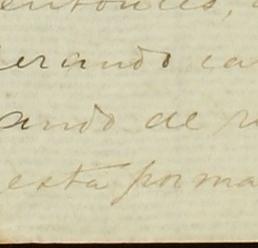 entonces,
erando ca
ando de r
esta forma